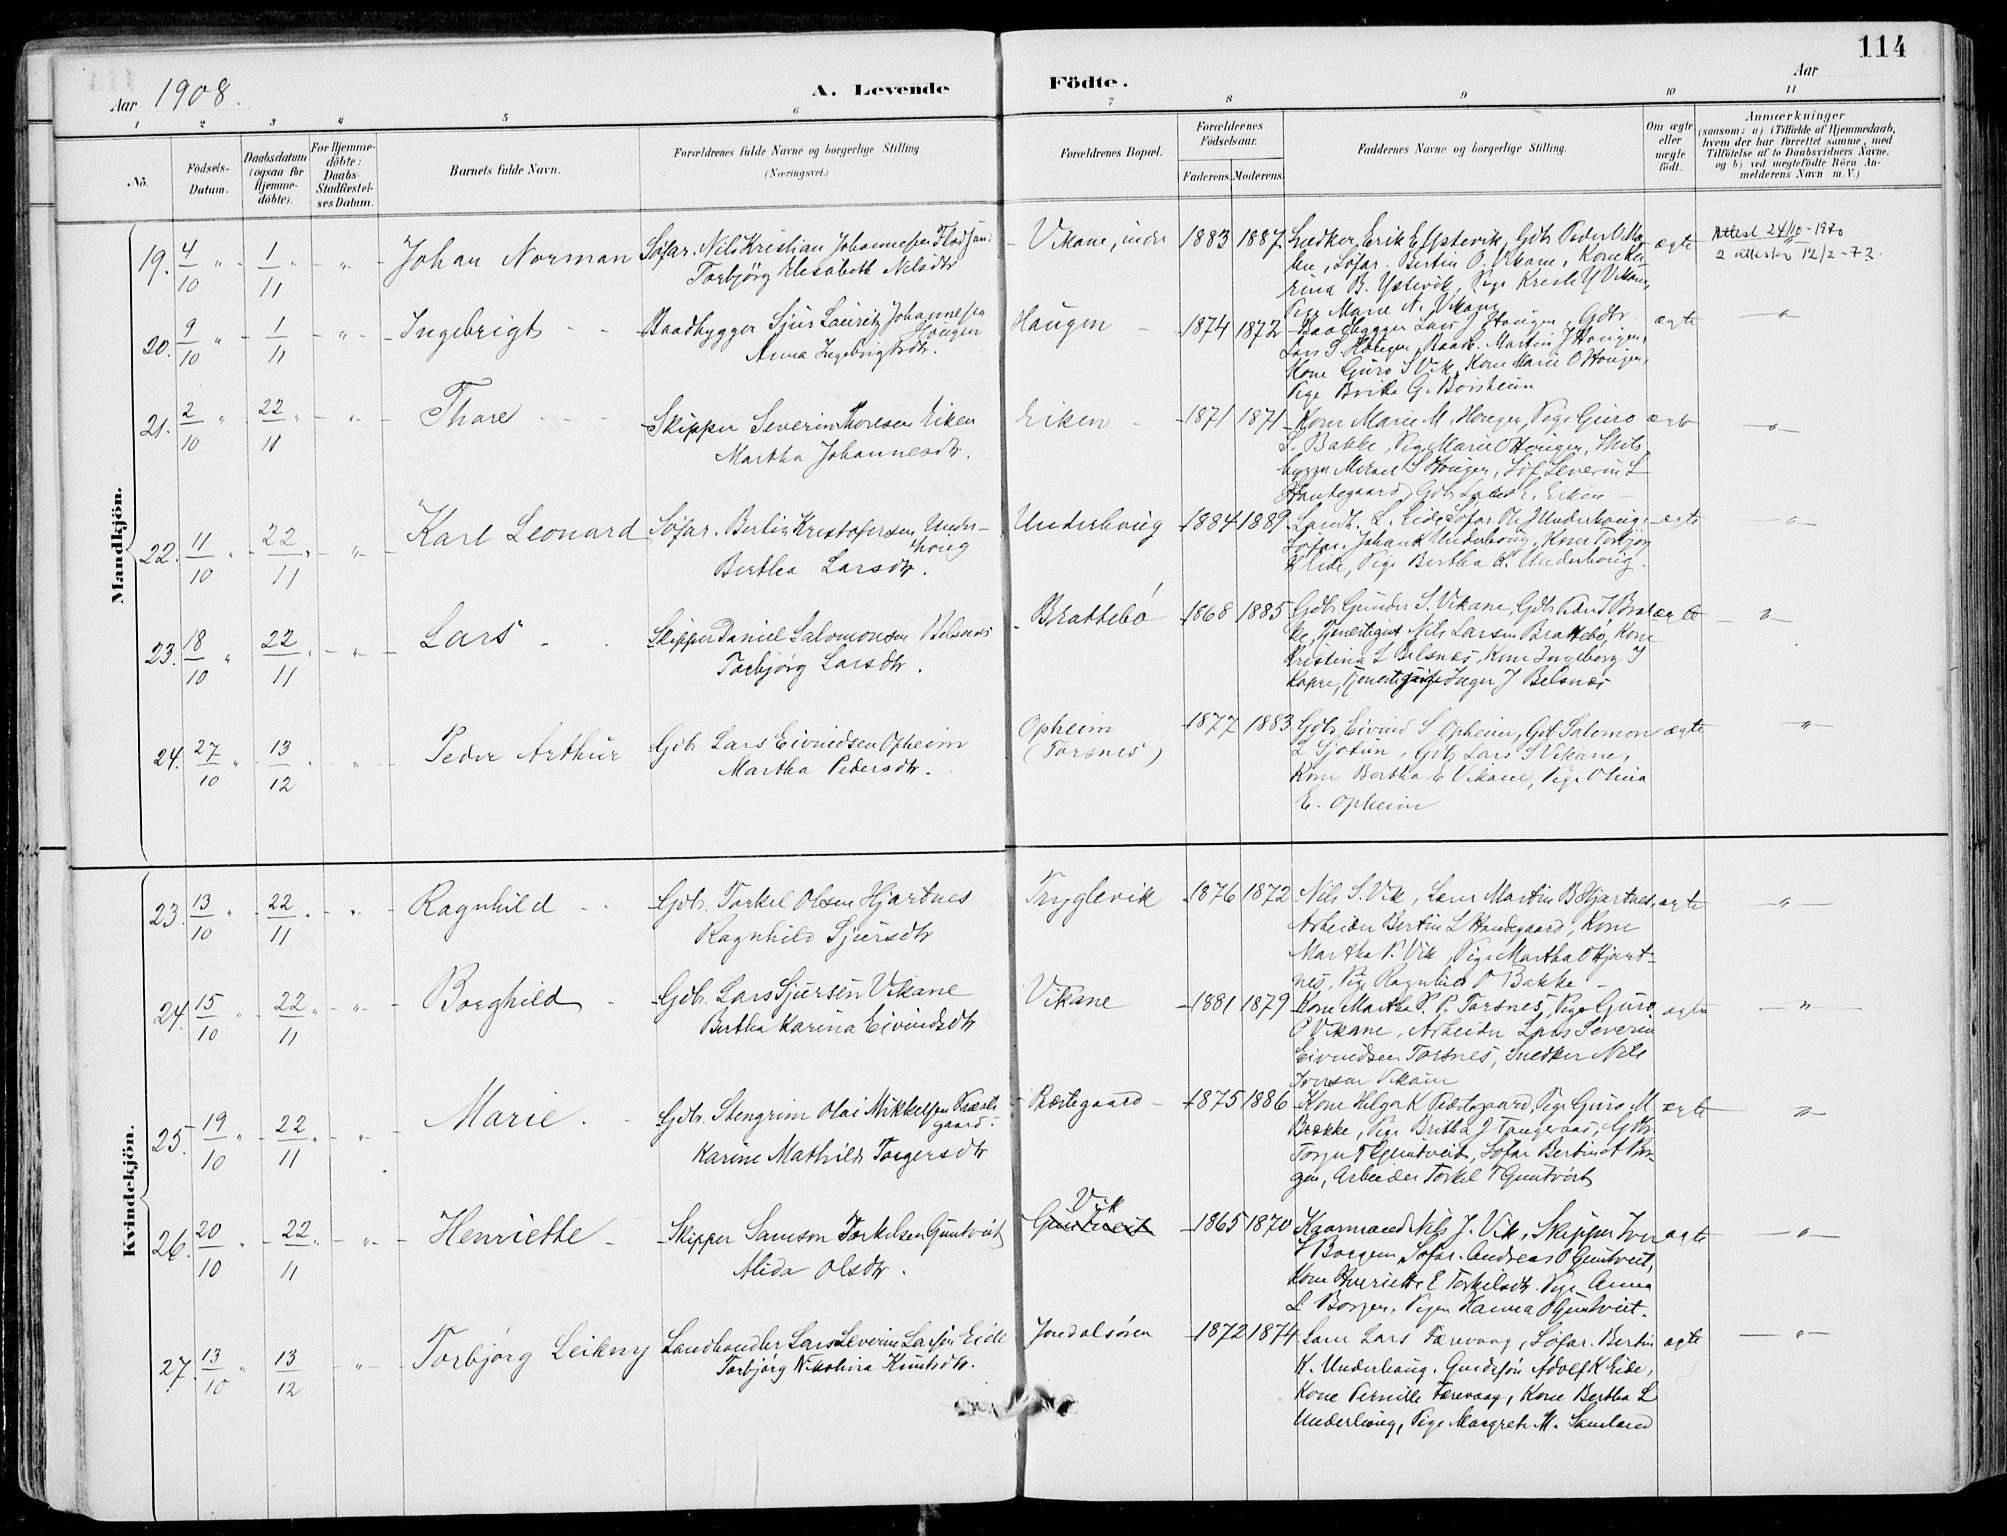 114
Aar 1908.
A. Levende Födte.
Aar
1 2 3 4 5 6 7 8 9 10 11
No.
Födsels-Datum.
Daabsdatum (ogsaa for Hjemmedöbte).
For Hjemmedöbte: Daabs-Stadfæstelses Datum.
Barnets fulde Navn.
Forældrenes fulde Navne og borgerlige Stilling.
(Næringsvei.)
Forældrenes Bopæl.
Forældrenes Födselsaar.
Faderens. Moderens.
Faddernes Navne og borgerlige Stilling.
Om ægte eller uægte födt.
Anmærkninger
(saasom: a) i Tilfælde af Hjemmedaab, hvem der har forrettet samme, med Tilföielse af to Daabsvidners Navne. og b) ved uægtefödte Börn Anmelderens Navn m. V.)
Mandkjön.
19. 4/10 " 1/11 " " Johan Norman Söfar. Nils Kristian Johannesen
Torbjörg Elisabeth Nilsdtr
Vikane, indre 1883 1887 Snedker Erik E Ystevik, Gdb. Peder V. Vikane, Söfar. Bertin O. Vikane, Kone
B. Ystevik, Pige Kristi Y Vikane,
Pige Marie N. Vikane
ægte
Attest 24/10-1970
2 attester 12/2-72.
20. 9/10 " 1/11 " " Ingebrigt Baadbygger Sjur Lauritz Johannesen Haugen
Anna Ingebrigtsdtr.
Haugen 1874 1872 Baadbygger Lars J Haugen, Gdb.
Lars S Haugen, Baadb. Martin J Haugen,
Kone Guro S Vik, Kone Marie O Haugen,
Pige Brita G. Börsheim
ægte "
21. 2/10 " 22/11 " " Thore Skipper Severin Thoresen Eiken
Martha Johannesdtr.
Eiken 1871 1871 Kone Marie M. Haugen, Pige Guro
S. Bakke, Pige Marie O Haugen, Skibs
bygger Mikael S Haugen, Söf. Severin L
Handegaard, Gdb. Lars E. Eiken
ægte "
22. 11/10 " 22/11 " " Karl Leonard Söfar. Bertin Kristofersen Underhoug
Bertha Larsdtr.
Underhoug 1884 1889 Landh. L. Eide, Söfar. J Underhoug,
Söfar. Johan K Underhoug, Kone Torbjörg
K Eide, Pige Bertha K. Underhoug.
ægte "
23. 18/10 " 22/11 " " Lars Skipper Daniel Salomonsen Belsnes
Torbjörg Larsdtr.
Brattebö 1868 1885 Gdb. Gunder S. Vikane, Gdb.
Nils Larsen Brattebö, Kone
Kristina L Belsnæs, Kone Ingeborg J
Kopre, Inger J Belsnæs
ægte "
24. 27/10 " 13/12 " " Peder Arthur Gdb. Lars Eivindsen Opheim
Martha Pedersdtr.
Opheim
(Torsnes)
1877 1883 Gdb. Eivind S Opheim, Gdb Salomon
L Sjotun, Gdb Lars S Vikane,
Kone Bertha E Vikane, Pige Olina
E. Opheim
ægte "
Kvindekjön.
23. 13/10 " 22/11 " " Ragnhild Gdb. Torkel Olsen Hjartnes
Ragnhild Sjursdtr
Tryglevik 1876 1872 Nils S. Vik, Martin B Hjartnes,
Arbeider Bertin L Handegaard, Kone
Martha P. Vik, Pige Martha O Hjartnes, Pige Ragnhild O Bakke
ægte "
24. 15/10 " 22/11 " " Borghild Gdb. Lars Sjursen Vikane
Bertha Karina Eivindsdtr
Vikane 1881 1879 Kone Martha P. P. Torsnes, Pige Guro
O Vikane, Arbeider Lars Severin
Eivindsen Torsnes, Snedker Nils
Iversen Vikane
ægte "
25. 19/10 " 22/11 " " Marie. Gdb. Stengrim Olai Mikkelsen Præstegaard.
Karine Mathilde Torgersdtr
Præstegaard 1875 1886 Kone Helga K Præstegaard, Pige Guro M
Bække, Pige Britha J Tangeraas, Gdbr.
Torger T Guntveit, Söfar Bertin A Borgen, Arbeider Torkel T Guntveit
ægte "
26. 20/10 " 22/11 " " Henriette Skipper Samson Torkelsen Guntveit
Alida Olsdtr.
Vik
Guntveit
1865 1870 Kaarmand Nils J. Vik, Skipper Iver
L Borgen, Söfar. Andreas O Guntveit,
Kone Henriette E Torkilsdtr. Pige Anna
L Borgen. Pigen Hanna O Guntveit.
ægte "
27. 13/10 13/12 " Torbjørg Leikny Landhandler Lars Severin Larsen Eide
Torbjörg Nikolina Knutsdtr.
Jondalsören 1872 1874 Lars Færevaag, Söfar. Bertin
K. Underhaug, Adolf K Eide,
Kone Pernille Færevaag, Kone Bertha L
Underhoug, Pige Margrete M. Samland
ægte "